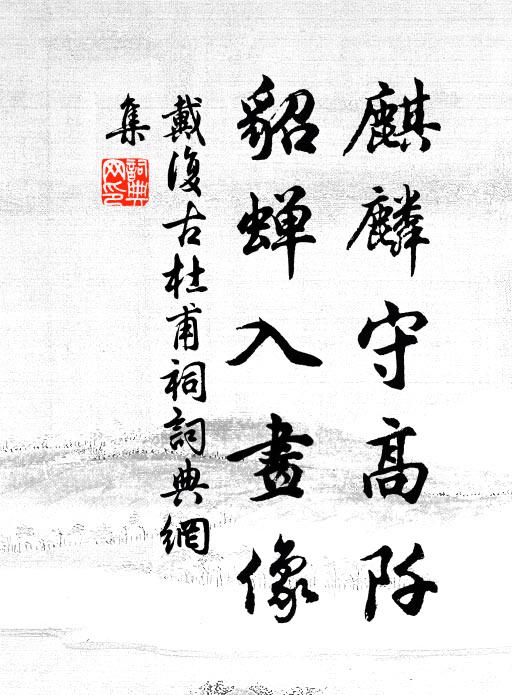 麒麟守高阡
貂蟬入畫像
戴復古杜甫祠詞典網
集
詞典網印